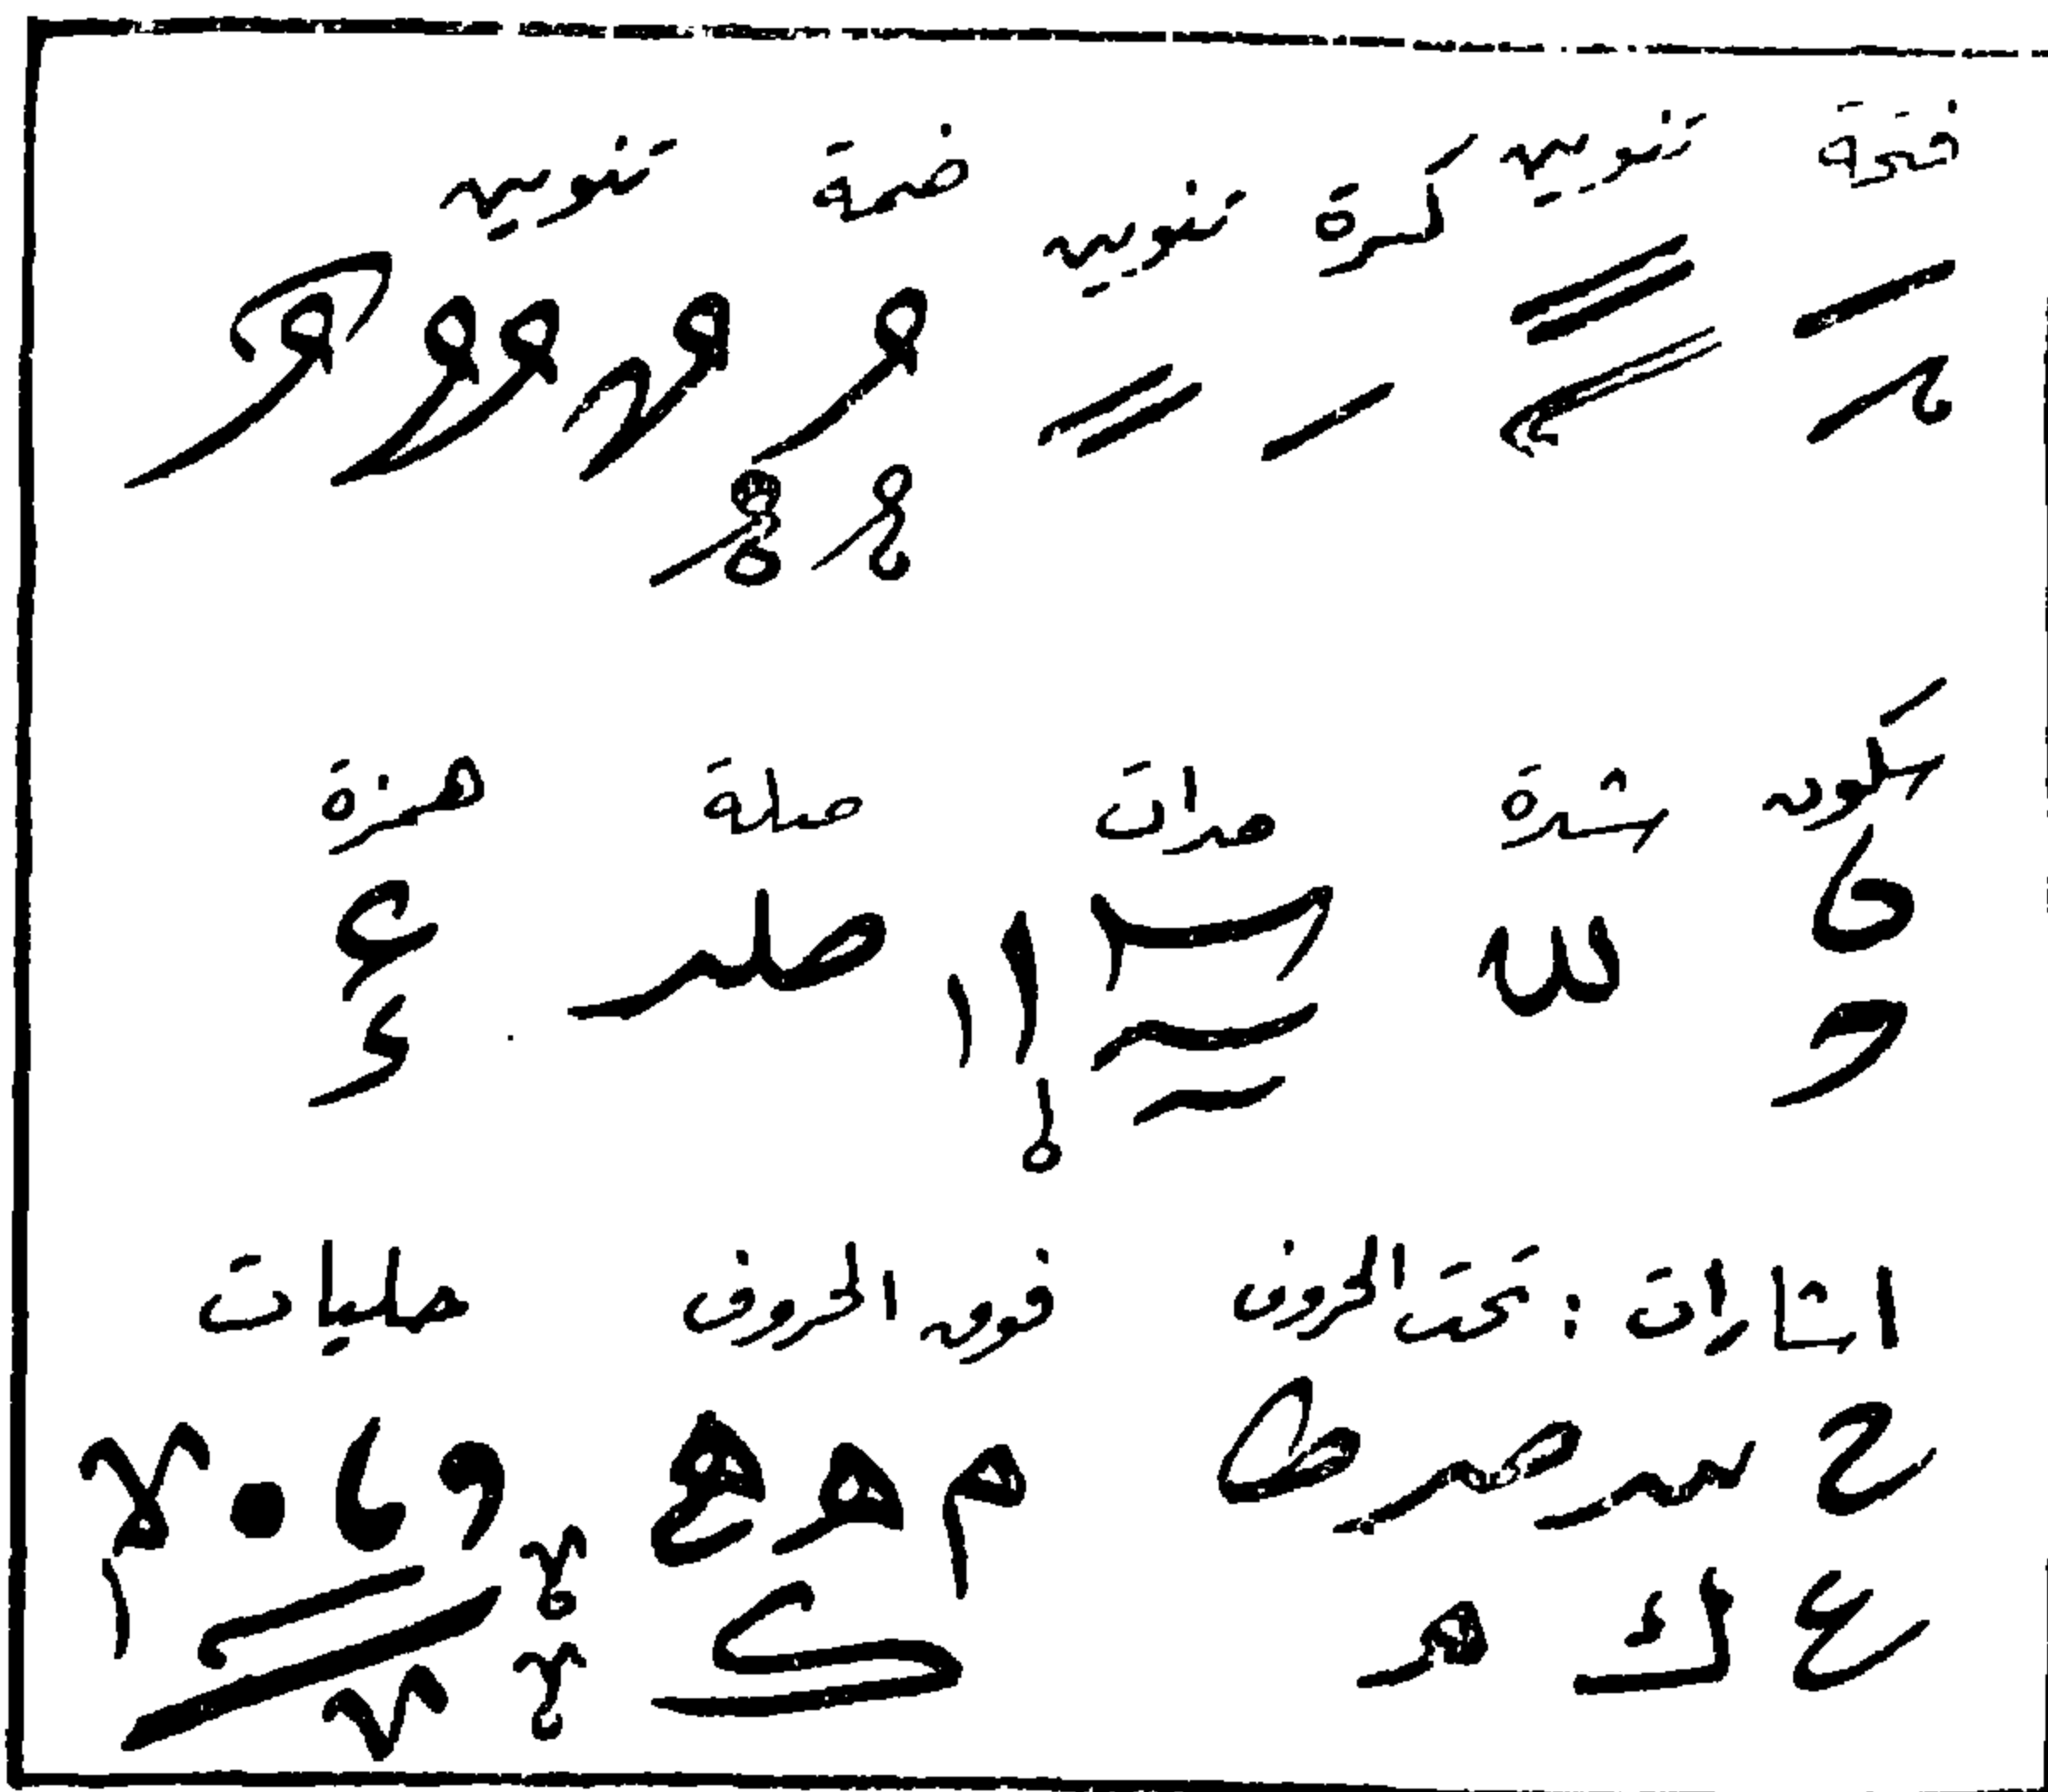 فتحة تنوين كسرة تنوين ضمة تنوين
سكون شدة مدات صلة همزة
صلے
اشارات : تحت الحروف فوق الحروف حليات
ح سـ صـ ط م هـ ع
ع ك هـ ک